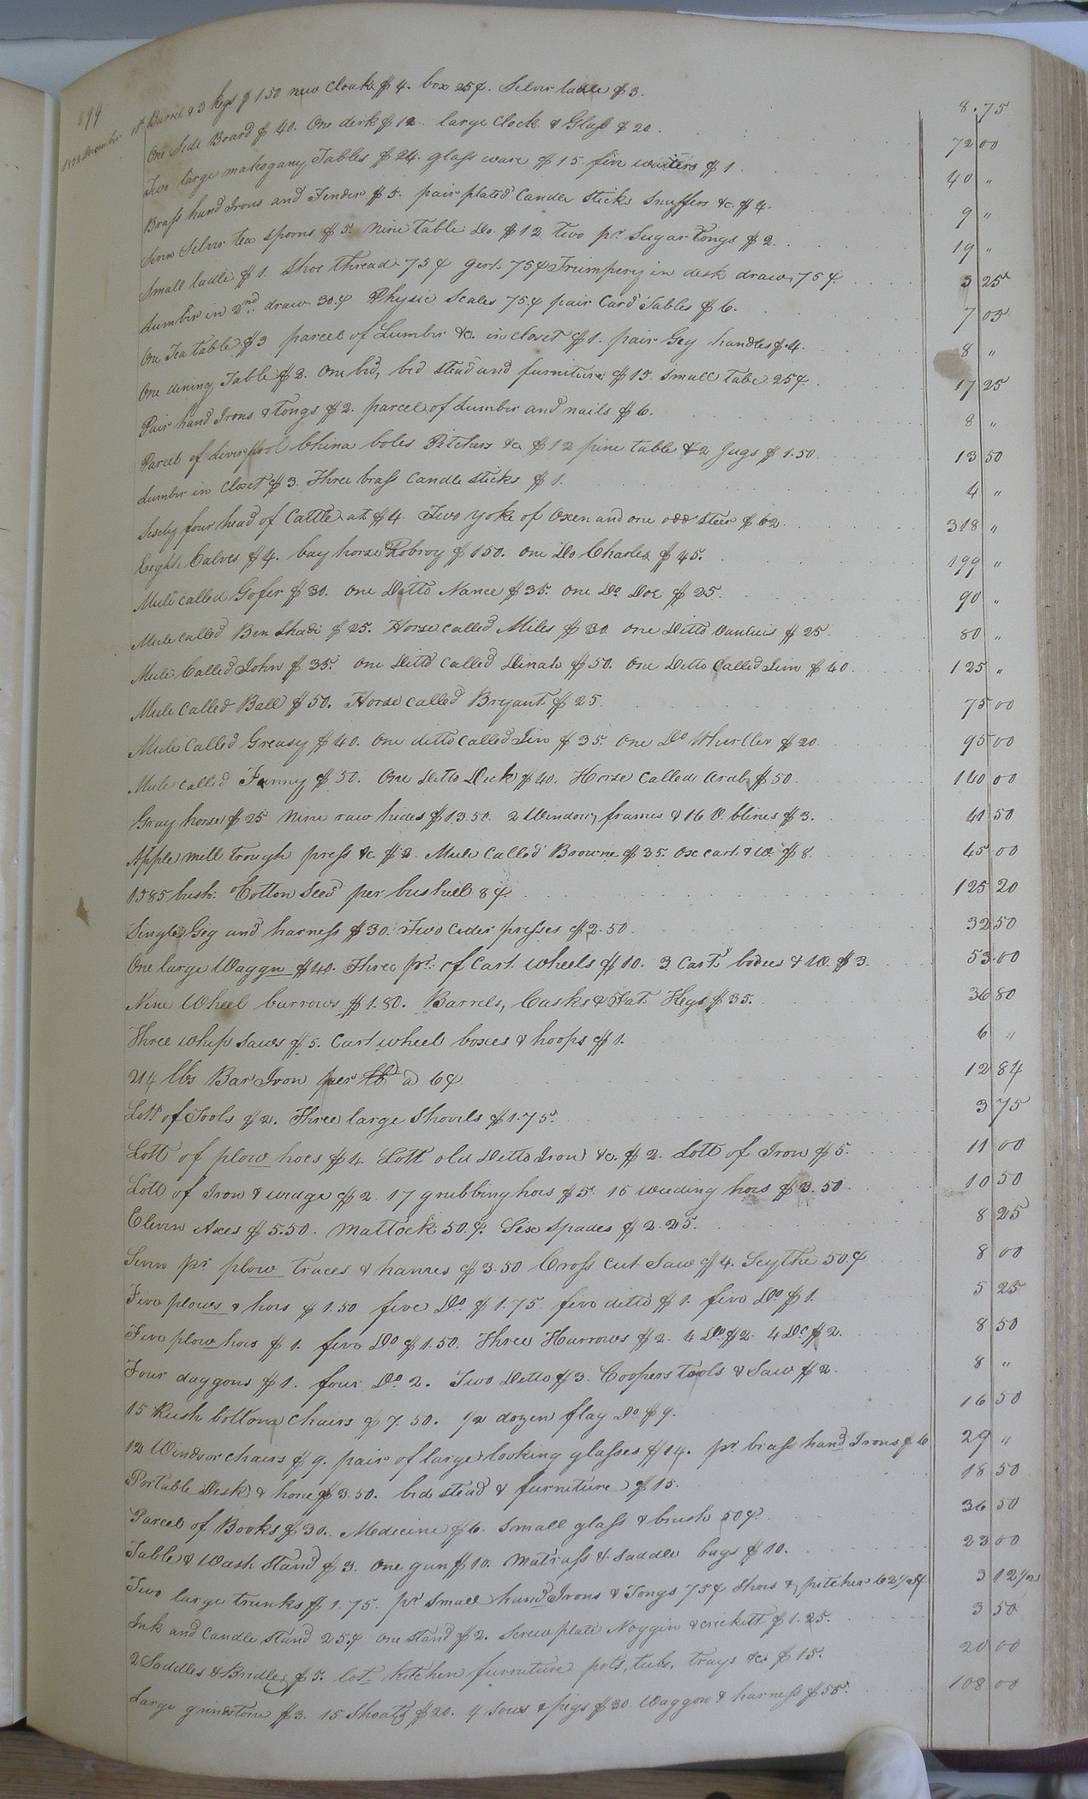 399
1st Barrel & 3 kegs $1.50 new Cloak $4. box 25¢. Silver ladle $3. 8.75
One Side Board $40. One desk $12 large Clock & Glass $20. 72 00
Two large mahogany Tables $24. glass ware $15 five waiters $1. 40 "
Brass hand Irons and Fender $5. pair plated Candle Sticks Snuffers &c. $4. 9 "
Seven Silver tea Spoons $5. Nine table Do. $12 two pr. Sugar Tongs $2. 19 "
Small ladle $1. Shoe thread 75¢ 75¢ Trumpery in desk draw 75¢ 3 25
Lumber in 2nd draw 30¢ Physic Scales 75¢ pair Card Tables $6. 7 05
One Tea table $3 parcel of Lumber &c. in closet $1. pair Gig handles $4. 8 "
One dining Table $2. One bed, bed stead and furniture $15. Small table 25¢. 17 25
Pair hand Irons & Tongs $2. parcel of Lumber and nails $6. 8 "
Parcel of Liverpool China boles Pitchers &c. $12 pine table & 2 Jugs $1.50 13 50
Lumber in Closet $3. Three brass Candle Sticks $1. 4 "
Sixty four head of Cattle at $4. Two yoke of Oxen and one odd Steer $62. 318 "
Eight Calves $4. bay horse Robroy $150. one Do Charles $45. 199 "
Mule called Gofer $30. One Ditto Nance $35. One Do Doc $25. 90 "
Mule called Ben $25. Horse called Miles $30 one Ditto $25 80 "
Mule Called John $35. One Ditto called Dinah $50. One Ditto Called Jim $40. 125 "
Mule Called Ball $50. Horse called Bryant $25 75 00
Mule Called Greasy $40. One ditto called Jin $35. One Do Whurller $20 95 00
Mule called Fanny $50. One Ditto Dick $40. Horse Called Arab $50. 140 00
Gray horse $25 Nine raw hides $13.50. 2 Window frames & 16 V. blines $3. 41 50
Apple mill trough press &c $2. Mule Called Browne $35. Ox cart & W. $8. 45 00
1585 bush. Cotton Seed per bushell 8¢. 125 20
Single Geg and harness $30. Two Cider presses $2.50. 32 50
One large Waggn $40. Three pr. of Cart wheels $10. 3 Carts bodies & W. $3. 53 00
Nine Wheel barrows $1.80. Barrels, Casks & Fat Kegs $35. 36 80
Three whip Saws $5. Cart wheel boxes & hoops $1. 6 "
214 lbs Bar Iron per lb a 6¢ 12 84
Lott of Tools $2. Three large Shovels $1.75. 3 75
Lott of plow hoes $4. Lott old Ditto Iron &c. $2. Lott of Iron $5. 11 00
Lott of Iron & wedge $2. 17 grubbing hoes $5. 15 weeding hoes $3.50 10 50
Eleven Axes $5.50. Mattock 50¢. Six Spades $2.25. 8 25
Seven pr plow traces & hames $3.50 Cross cut Saw $4. Scythe 50¢ 8 00
Five plows & hoes $1.50 five Do $1.75. five ditto $1. five Do $1. 5 25
Five plow hoes $1. five Do $1.50. Three Harrows $2. 4 Do $2. 4 Do $2. 8 50
Four daggons $1. four Do 2. Two Ditto $3. Coopers tools & Saw $2. 8 "
15 Rush bottom Chairs $7.50. 1/2 dozen flag Do $9. 16 50
12 Windsor Chairs $9. pair of large looking glasses $14. pr brass hand Irons $6 29 "
Portable Desk & hone $3.50. bed stead & furniture $15. 18 50
Parcel of Books $30. Medicine $6. Small glass & brush 50¢. 36 50
Table & Wash Stand $3. One gun $10. Matrass & Saddle bags $10. 23 00
Two large trunks $1.75. pr small hand Irons & Tongs 75¢ Shoes & pitcher 62 1/2¢ 3 12 1/2
Ink and Candle Stand 25¢ one stand $2. Screw plate Noggin & crickett $1.25. 3 50
2 Saddles & Bridles $5. lot Kitchen furniture pots, tubs, trays &c. $15. 20 00
Large grindstone $3. 15 Shoats $20. 4 Sows & pigs $30 Waggon & harness $55. 108 00